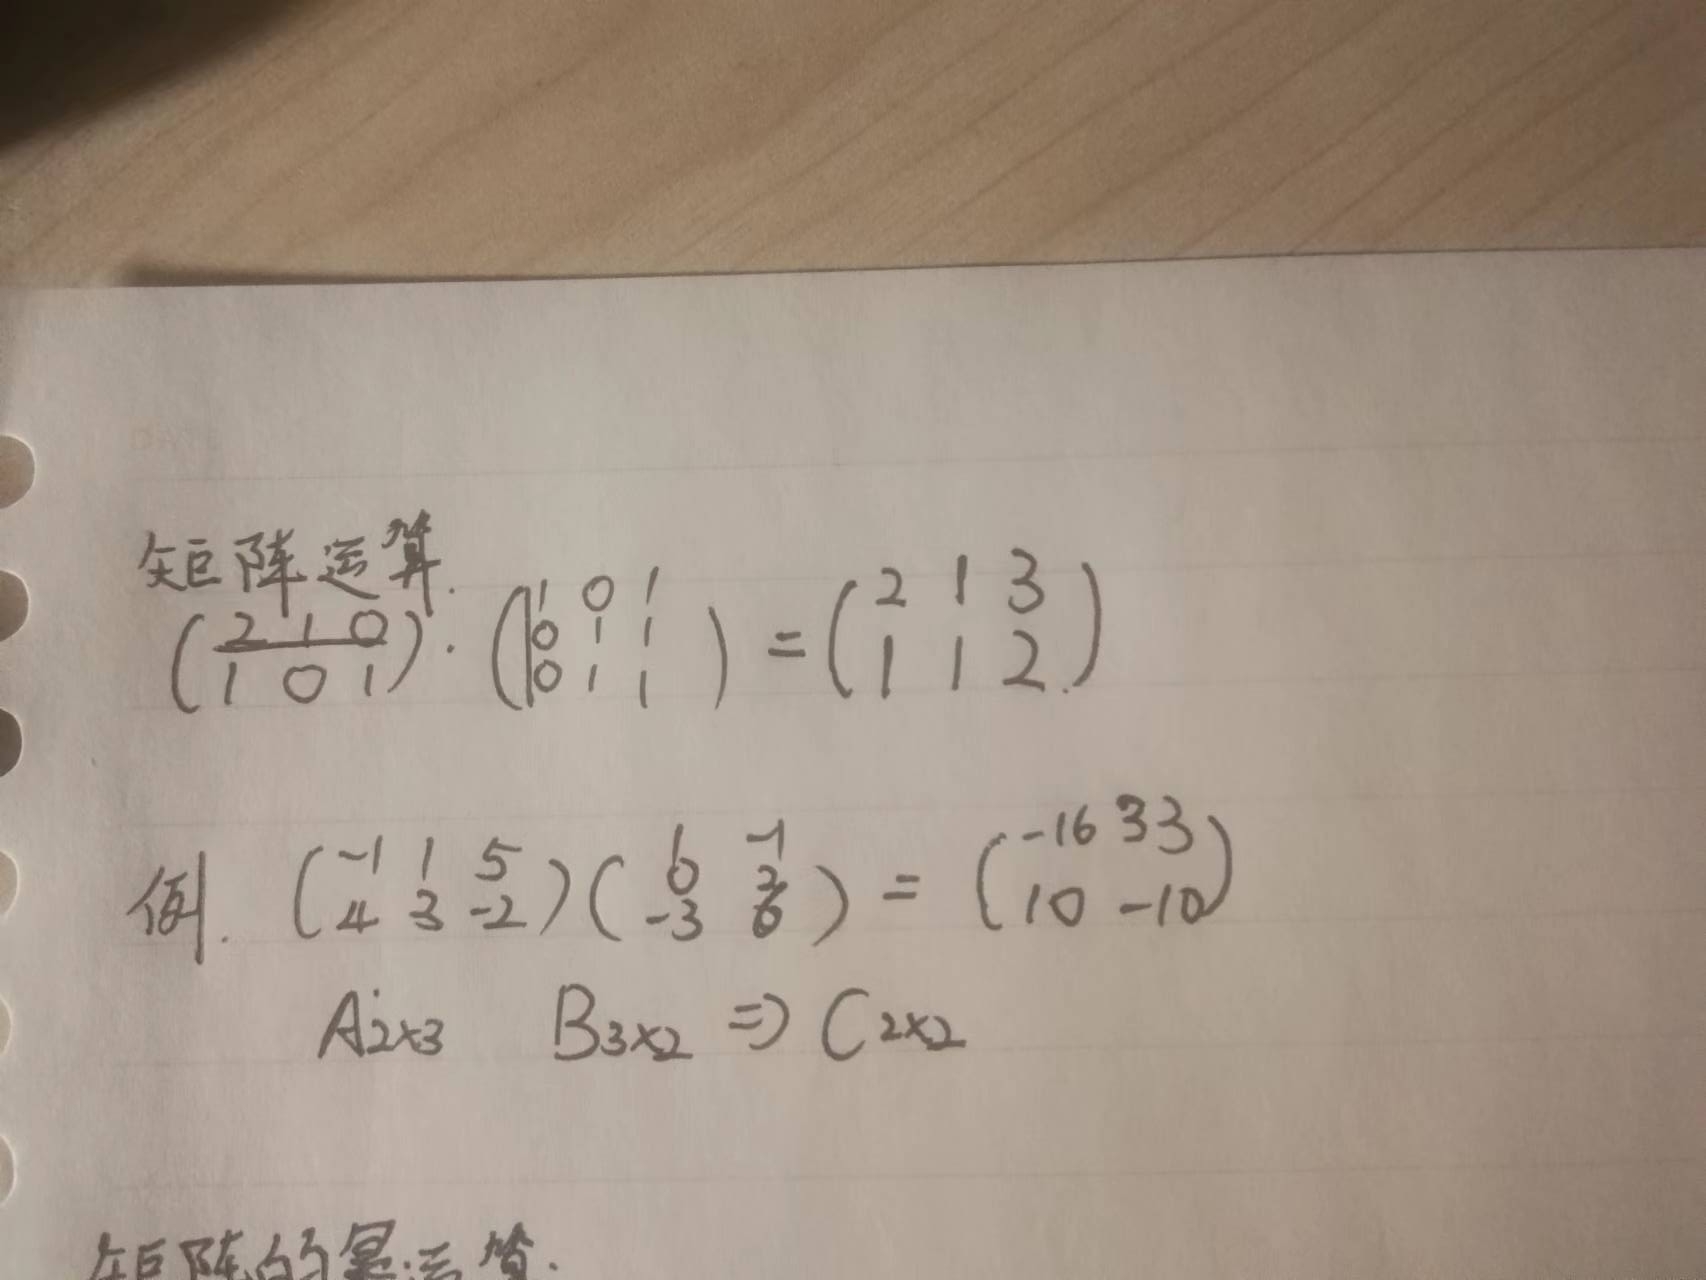 矩阵运算.
(2 1 0
1 0 1) · (1 0 1
0 1 1
0 1 1) = (2 1 3
1 1 2).
例. (-1 1 5
4 3 -2)(1 -1
0 2
-3 6) = (-16 33
10 -10)
A2×3 B3×2 ⇒ C2×2
矩阵的幂运算.